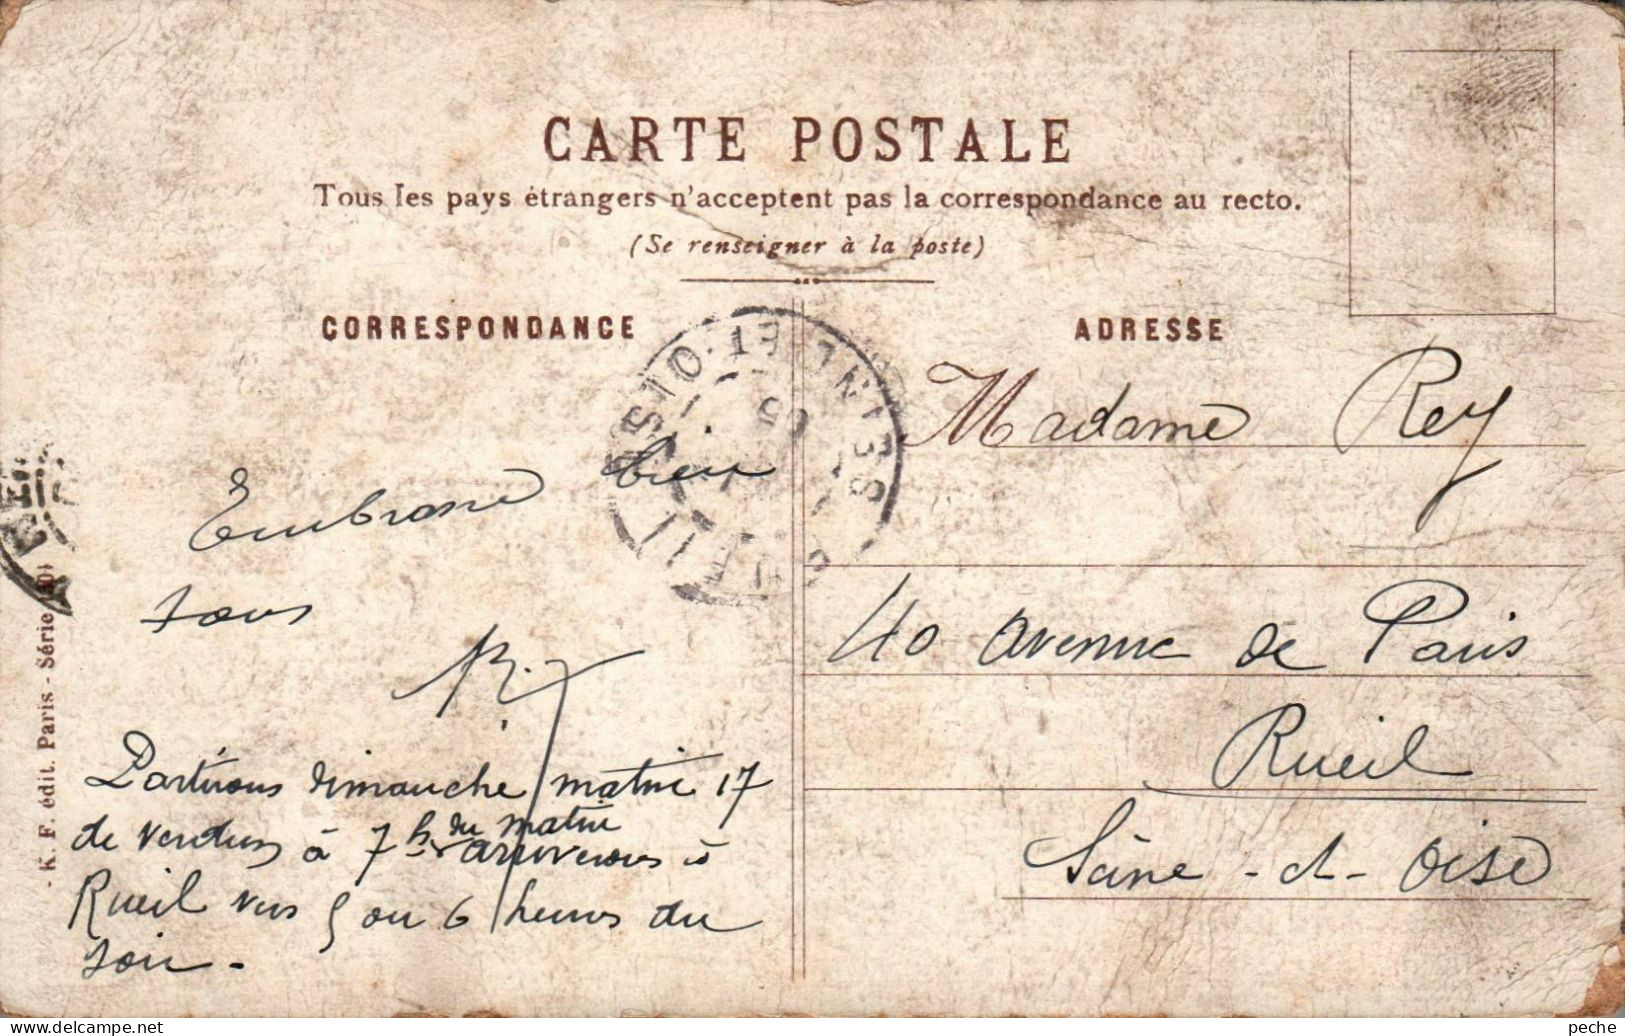 CARTE POSTALE
Tous les pays étrangers n'acceptent pas la correspondance au recto.
(Se renseigner à la poste)
CORRESPONDANCE
Embrasse bien
tous
R.
Partirons dimanche matin 17
de Verdun à 7 h du matin arriverons à
Rueil vers 5 ou 6 heures du
soir -
ADRESSE
Madame Rey
40 avenue de Paris
Rueil
Seine-et-Oise
SEINE-ET-OISE
- K. F. édit. Paris - Série
peche